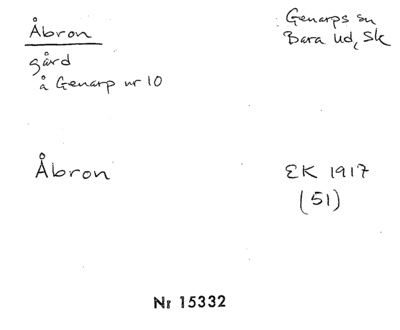 Åbron
gård
å Genarp nr 10
Genarps sn
Bara hd, Sk
Åbron
EK 1917
(51)
Nr 15332